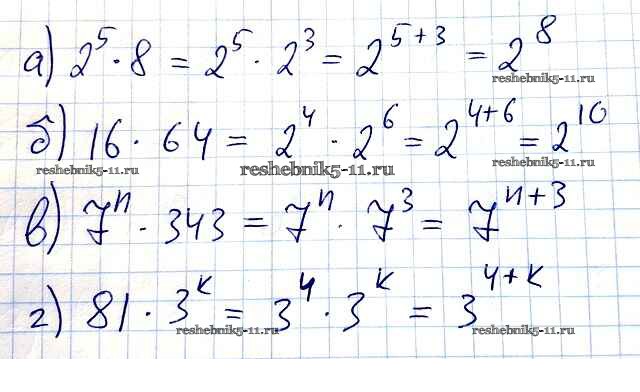 а) 2⁵ · 8 = 2⁵ · 2³ = 2⁵⁺³ = 2⁸
reshebnik5-11.ru
б) 16 · 64 = 2⁴ · 2⁶ = 2⁴⁺⁶ = 2¹⁰
reshebnik5-11.ru reshebnik5-11.ru
в) 7ⁿ · 343 = 7ⁿ · 7³ = 7ⁿ⁺³
г) 81 · 3ᵏ = 3⁴ · 3ᵏ = 3⁴⁺ᵏ
reshebnik5-11.ru reshebnik5-11.ru